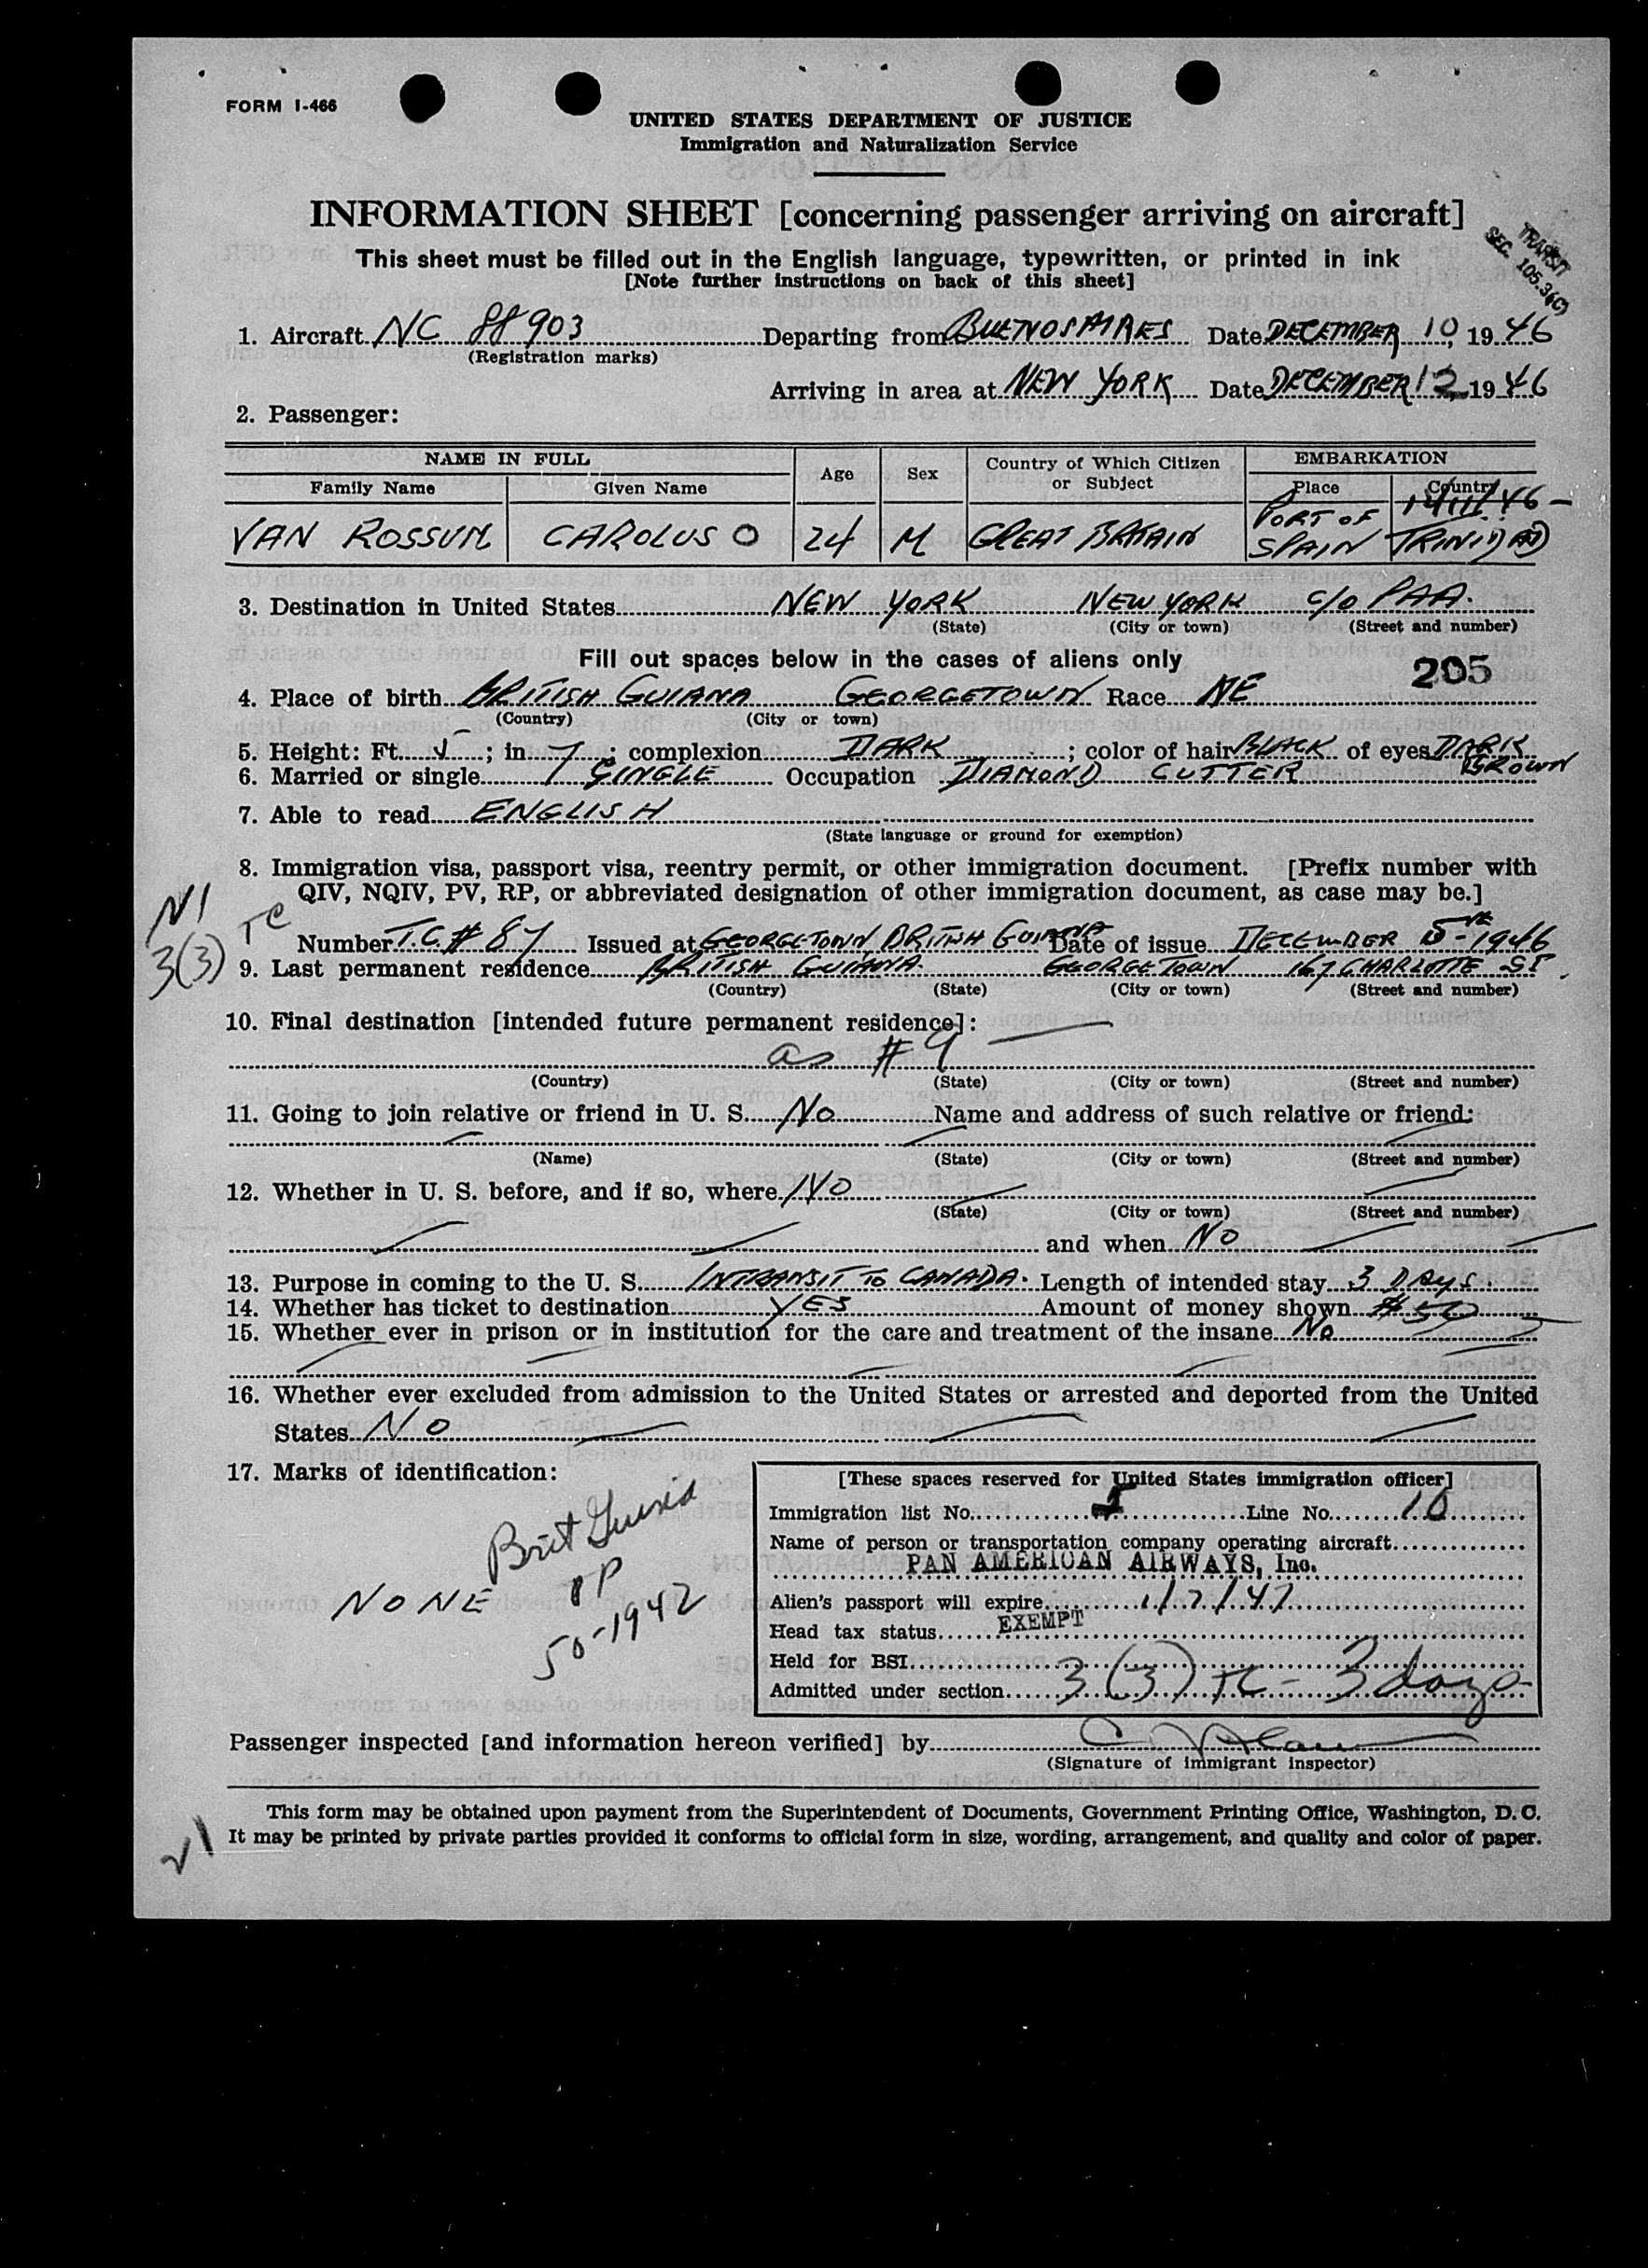 FORM I-466
UNITED STATES DEPARTMENT OF JUSTICE
Immigration and Naturalization Service
INFORMATION SHEET [concerning passenger arriving on aircraft]
TRANSIT
SEC. 105.3(C)
This sheet must be filled out in the English language, typewritten, or printed in ink
[Note further instructions on back of this sheet]
1. Aircraft NC 88903 Departing from BUENOS AIRES Date DECEMBER 10, 1946
(Registration marks)
Arriving in area at NEW YORK Date DECEMBER 12, 1946
2. Passenger:
NAME IN FULL Age Sex Country of Which Citizen or Subject EMBARKATION
Family Name Given Name Place Country
VAN ROSSUM CAROLUS O 24 M GREAT BRITAIN PORT OF SPAIN TRINIDAD
3. Destination in United States NEW YORK NEW YORK c/o PAA.
(State) (City or town) (Street and number)
Fill out spaces below in the cases of aliens only
205
4. Place of birth BRITISH GUIANA GEORGETOWN Race NE
(Country) (City or town)
5. Height: Ft. 5; in. 7; complexion DARK; color of hair BLACK of eyes DARK BROWN
6. Married or single SINGLE Occupation DIAMOND CUTTER
7. Able to read ENGLISH
(State language or ground for exemption)
8. Immigration visa, passport visa, reentry permit, or other immigration document. [Prefix number with
QIV, NQIV, PV, RP, or abbreviated designation of other immigration document, as case may be.]
NI
3(3) TC
Number T.C.# 87 Issued at GEORGETOWN BRITISH GUIANA Date of issue DECEMBER 5th 1946
9. Last permanent residence BRITISH GUIANA. GEORGETOWN 167 CHARLOTTE ST.
(Country) (State) (City or town) (Street and number)
10. Final destination [intended future permanent residence]:
as # 9
(Country) (State) (City or town) (Street and number)
11. Going to join relative or friend in U. S. No Name and address of such relative or friend:
(Name) (State) (City or town) (Street and number)
12. Whether in U. S. before, and if so, where NO
(State) (City or town) (Street and number)
and when NO
13. Purpose in coming to the U. S. INTRANSIT TO CANADA. Length of intended stay 3 DAYS.
14. Whether has ticket to destination YES Amount of money shown $50
15. Whether ever in prison or in institution for the care and treatment of the insane No
16. Whether ever excluded from admission to the United States or arrested and deported from the United
States NO
17. Marks of identification:
NONE
Brit Guiana
PP
50-1942
[These spaces reserved for United States immigration officer]
Immigration list No. 5 Line No. 10
Name of person or transportation company operating aircraft
PAN AMERICAN AIRWAYS, Inc.
Alien's passport will expire 1/7/47
Head tax status EXEMPT
Held for BSI
Admitted under section 3(3) TC - 3 days
Passenger inspected [and information hereon verified] by
(Signature of immigrant inspector)
This form may be obtained upon payment from the Superintendent of Documents, Government Printing Office, Washington, D. C.
It may be printed by private parties provided it conforms to official form in size, wording, arrangement, and quality and color of paper.